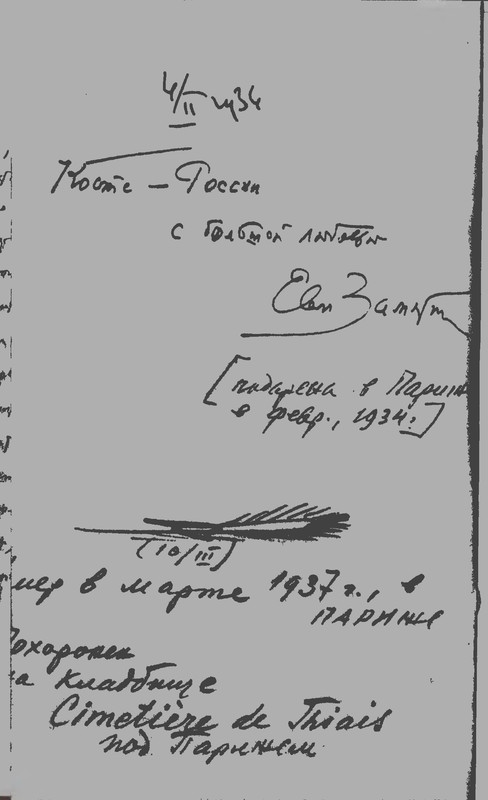 4/II 1934
Косте – России
с большой любовью
Евг Замят
[подарена в Париж
в февр., 1934 г.]
(10/III)
мер в марте 1937 г., в
ПАРИЖЕ
Похоронен
на кладбище
Cimetière de Thiais
под Парижем